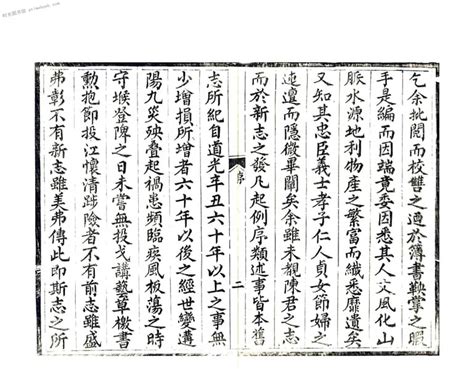 乞余批閱而校讎之適於簿書鞅掌之暇
手是編而因端竟委因悉其人文風化山
脈水源地利物產之繁富而纖悉靡遺矣
又知其忠臣義士孝子仁人貞女節婦之
迍邅而隱微畢闡矣余雖未覩陳君之志
而於新志之發凡起例序類述事皆本舊
序
二
志所紀自道光辛丑六十年以上之事無
少增損所增者六十年以後之經世變遘
陽九災殃疊起禍患頻臨疾風板蕩之時
守堠登陴之日未嘗無投戈講藝草檄書
勲抱節投江懷清踄險者不有前志雖盛
弗彰不有新志雖美弗傳此即斯志之所